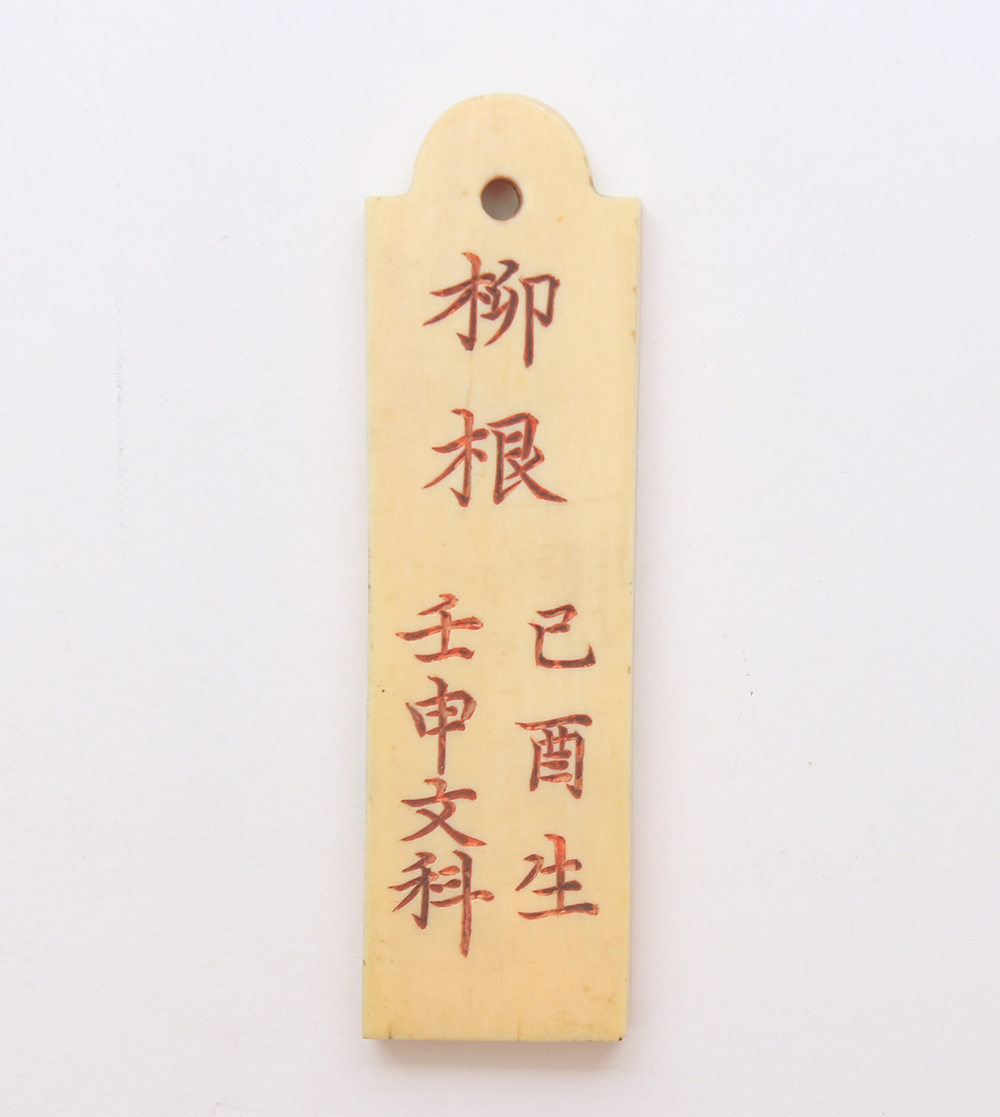 柳根
己酉生
壬申文科